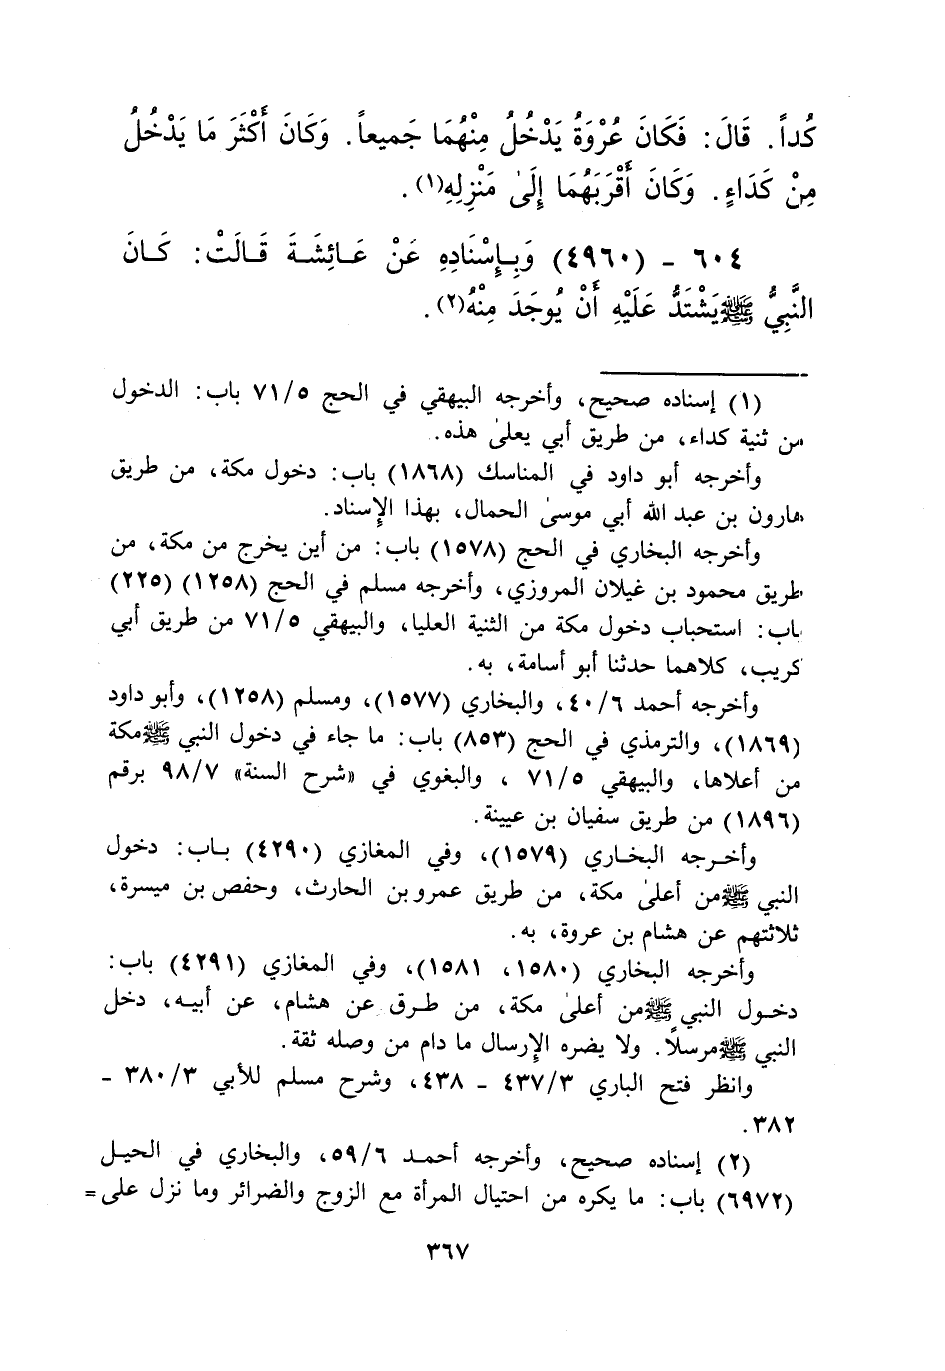 كُداً. قَالَ: فَكَانَ عُرْوَةُ يَدْخُلُ مِنْهُمَا جَميعاً. وَكَانَ أَكْثَرَ مَا يَدْخُلُ
مِنْ كَدَاءٍ. وَكَانَ أَقْرَبَهُمَا إِلَىٰ مَنْزِلِهِ(١).
٦٠٤ - (٤٩٦٠) وَبِإِسْنَادِهِ عَنْ عَائِشَةَ قَالَتْ: كَانَ
النَّبِيُّ ﷺ يَشْتَدُّ عَلَيْهِ أَنْ يُوجَدَ مِنْهُ(٢).
(١) إسناده صحيح، وأخرجه البيهقي في الحج ٧١/٥ باب: الدخول
من ثنية كداء، من طريق أبي يعلىٰ هذه.
وأخرجه أبو داود في المناسك (١٨٦٨) باب: دخول مكة، من طريق
هارون بن عبد الله أبي موسىٰ الحمال، بهذا الإِسناد.
وأخرجه البخاري في الحج (١٥٧٨) باب: من أين يخرج من مكة، من
طريق محمود بن غيلان المروزي، وأخرجه مسلم في الحج (١٢٥٨) (٢٢٥)
باب: استحباب دخول مكة من الثنية العليا، والبيهقي ٧١/٥ من طريق أبي
كريب، كلاهما حدثنا أبو أسامة، به.
وأخرجه أحمد ٤٠/٦، والبخاري (١٥٧٧)، ومسلم (١٢٥٨)، وأبو داود
(١٨٦٩)، والترمذي في الحج (٨٥٣) باب: ما جاء في دخول النبي ﷺ مكة
من أعلاها، والبيهقي ٧١/٥ ، والبغوي في «شرح السنة» ٩٨/٧ برقم
(١٨٩٦) من طريق سفيان بن عيينة.
وأخرجه البخاري (١٥٧٩)، وفي المغازي (٤٢٩٠) باب: دخول
النبي ﷺ من أعلىٰ مكة، من طريق عمرو بن الحارث، وحفص بن ميسرة،
ثلاثتهم عن هشام بن عروة، به.
وأخرجه البخاري (١٥٨٠، ١٥٨١)، وفي المغازي (٤٢٩١) باب:
دخول النبي ﷺ من أعلىٰ مكة، من طرق عن هشام، عن أبيه، دخل
النبي ﷺ مرسلاً. ولا يضره الإِرسال ما دام من وصله ثقة.
وانظر فتح الباري ٤٣٧/٣ - ٤٣٨، وشرح مسلم للأبي ٣٨٠/٣ -
٣٨٢.
(٢) إسناده صحيح، وأخرجه أحمد ٥٩/٦، والبخاري في الحيل
(٦٩٧٢) باب: ما يكره من احتيال المرأة مع الزوج والضرائر وما نزل على =
٣٦٧